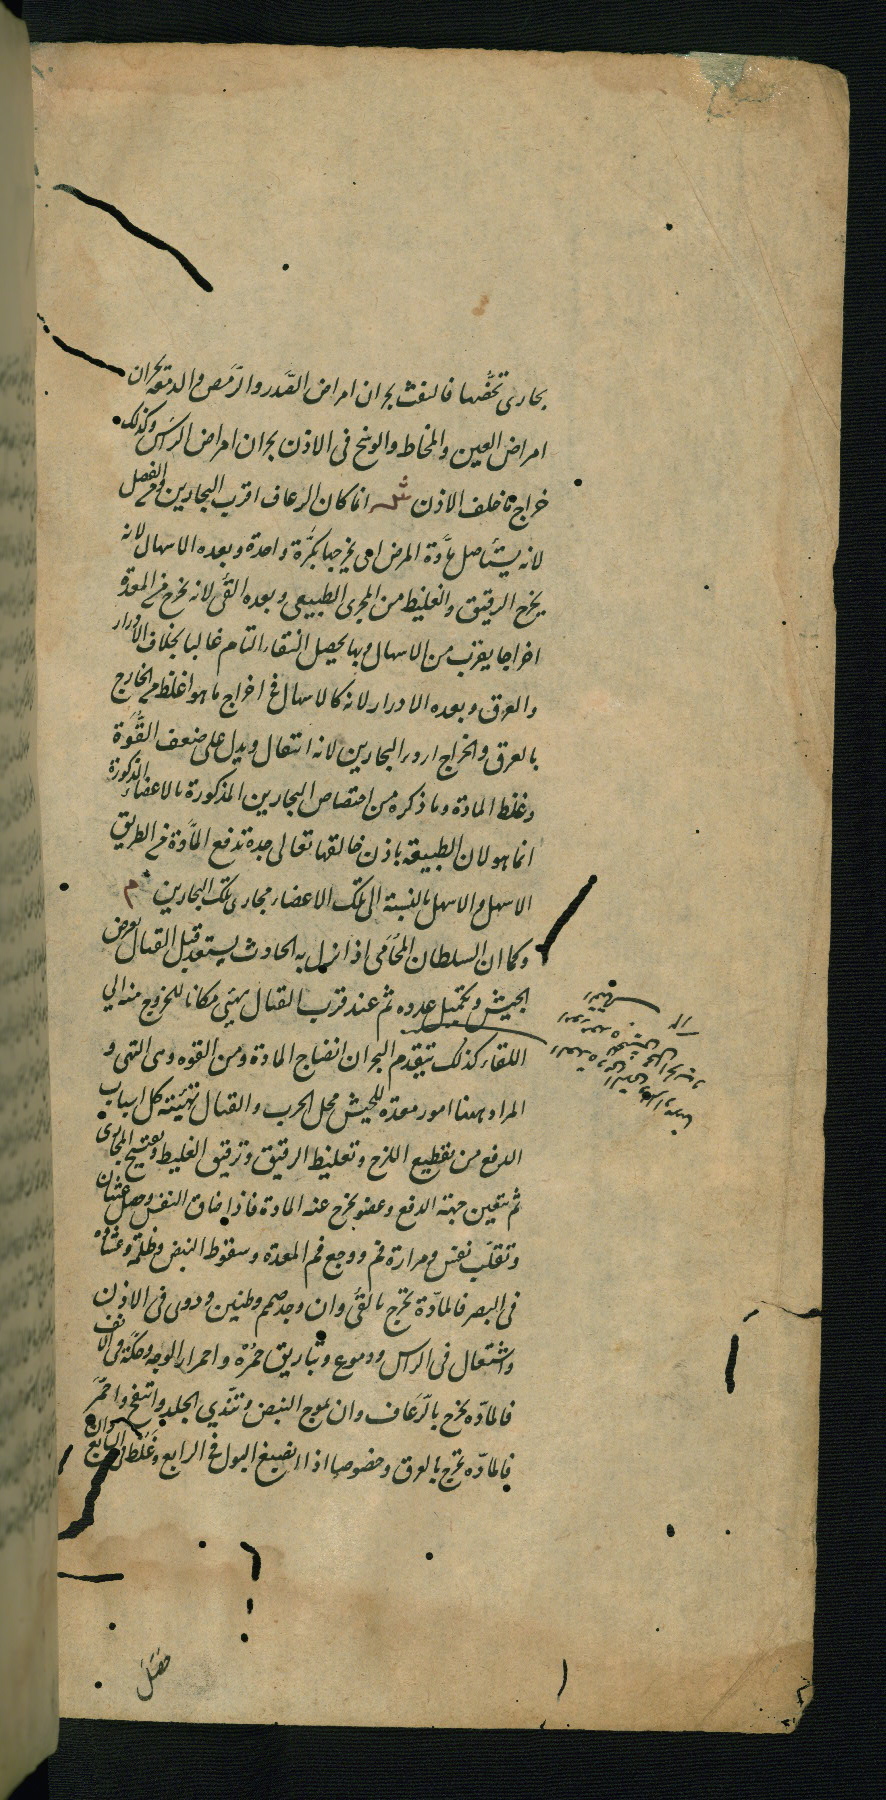 بحارى تخصّها فالنفث بحران امراض الصّدر والرّمص والدمعة بحران
امراض العين والمخاط والوسخ فى الاذن بحران امراض الرّاس وكذلك
خراج ما خلف الاذن انما كان الرعاف اقرب البحارين فى الفصل
لانه يستأصل مادّة المرض اى يخرجها بمرّة واحدة وبعده الاسهال لانه
يخرج الرقيق والغليظ من المجرى الطبيعى وبعده القئ لانه يخرج من المعدة
اخراجا يقرب من الاسهال وبها يحصل النقاء التام غالبا بخلاف الادرار
والعرق وبعده الادرار لانه كالاسهال فى اخراج ما هو اغلظ من الخارج
بالعرق والخراج اردء البحارين لانه انتقال ويدل على ضعف القوّة
وغلظ المادة وما ذكره من اختصاص البحارين المذكورة بالاعضاء المذكورة
انما هو لان الطبيعة باذن خالقها تعالى جده تدفع المادّة من الطريق
الاسهل والاسهل بالنسبة الى تلك الاعضاء مجارى تلك البحارين م
وكما ان السلطان المحامى اذا نزل به الحادث يستعد قبل القتال بعرض
الجيش وتكميل عدده ثم عند قرب القتال يهيئ مكانا للخروج منه الى
اللقاء كذلك يتقدم البحران انضاج المادة ومن القوة وهى التى و
المراد ههنا امور معدة للجيش محل الحرب والقتال تهيئته كل اسباب
الدفع من تقطيع اللزج وتغليظ الرقيق وترقيق الغليظ وتفتيح المجارى
ثم تتعين جهة الدفع وعضو يخرج عنه المادة فاذا ضاق النفس وحصل غثيان
وتقلّب نفس ومرارة فم ووجع فم المعدة وسقوط النبض وظلمة وغشاوة
فى البصر فالمادّة تخرج بالقئ وان وجد صمم وطنين ودوى فى الاذن
واشتعال فى الراس ودموع وتباريق حمرة واحمرار الوجه وحكّة فى الانف
فالمادّة تخرج بالرّعاف وان تموج النبض وتندّى الجلد وانتفخ واحمّر
فالمادّه تخرج بالعرق وخصوصا اذا انصبغ البول فى الرابع وغلظ فى السابع وان
فصل